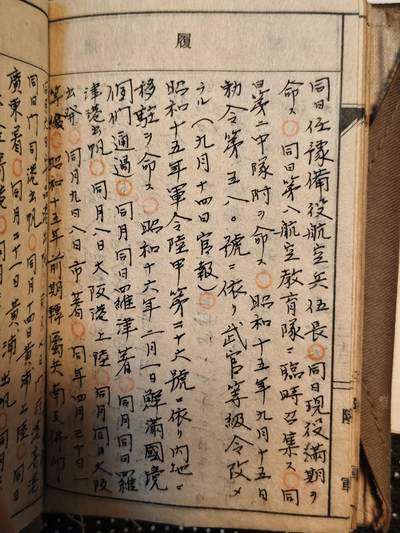 履
同日任豫備役航空兵伍長○同日現役満期ヲ
命ス○同日第八航空教育隊ニ臨時召集ス○同
日第二中隊附ヲ命ス○昭和十五年九月十五日
勅令第五八〇號ニ依リ武官等級令改メ
ラル(九月十四日官報)○
昭和十五年軍令陸甲第二十六號ニ依リ内地ニ
移駐ヲ命ス○昭和十六年二月一日鮮滿國境
圖們通過○同月同日羅津著○同月同日羅
津港出帆○同月八日大阪港上陸○同月同日大阪
出發○同月九日八日市著○同年四月三十日一
等級○昭和十五年前期轉屬兵
同日門司港出帆○同月十四日黄埔上陸○同日
廣東著○同月二十日黄埔出帆○
軍